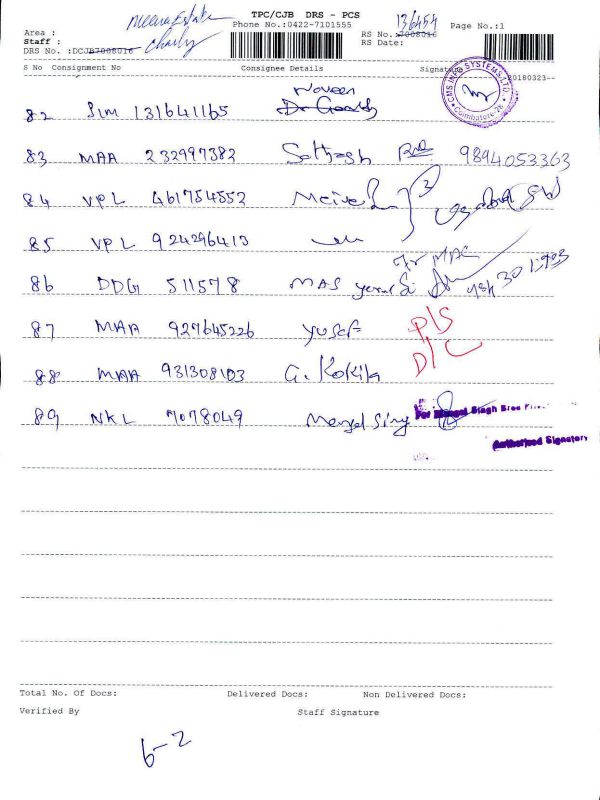 Meena Estate TPC/CJB DRS - PCS 136454
Area : Phone No.:0422-7101555 RS No.:7008016 Page No.:1
Staff : Charly RS Date:
DRS No. :DCJB7008016
S No Consignment No Consignee Details Signature 20180323--
CMS INFO SYSTEMS LTD. Coimbatore-26
Naveen
82 SIM 131641165
83 MAA 232997382 Sathash 9894053363
84 VPL 461754552
85 VPL 924296413
For MAC
86 DDG 511578 MAS
87 MAA 927645226 Yusef P/S
D/C
88 MAA 931308103 G. Kokila
89 NKL 7078049 Mangal Sing For Mangal Singh Bros
Authorised Signatory
Total No. Of Docs: Delivered Docs: Non Delivered Docs:
Verified By Staff Signature
6-2